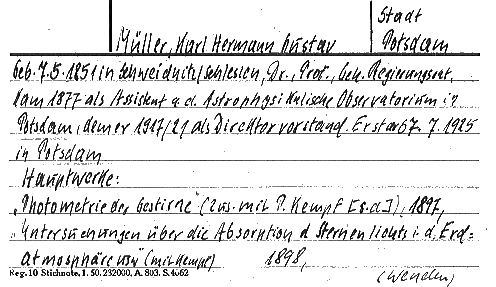 Stadt
Müller, Karl Hermann Gustav Potsdam
Geb. 7.5.1851 in Schweidnitz/Schlesien, Dr., Prof., Geh. Regierungsrat,
kam 1877 als Assistent a.d. Astrophysikalische Observatorium in
Potsdam, dem er 1917/21 als Direktor vorstand. Er starb 7.7.1925
in Potsdam
Hauptwerke:
„Photometrie der Gestirne" (zus. mit P. Kempf [s.d.]), 1897,
„Untersuchungen über die Absorption d. Sternenlichts i.d. Erd-
atmosphäre usw (mit Kempf) 1898,
Reg. 10 Stichnote, I. 50. 232000. A. 803. S. 4062
(Wenden)